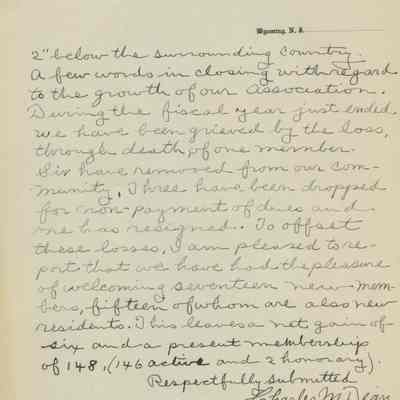 Wyoming, N. J.
2" below the surrounding country.
A few words in closing with regard
to the growth of our association.
During the fiscal year just ended
we have been grieved by the loss,
through death, of one member.
Six have removed from our com-
munity, Three have been dropped
for non-payment of dues and
one has resigned. To offset
these losses, I am pleased to re-
port that we have had the pleasure
of welcoming seventeen new mem-
bers, fifteen of whom are also new
residents. This leaves a net gain of
six and a present membership
of 148, (146 active and 2 honorary).
Respectfully submitted
Charles M. Dean